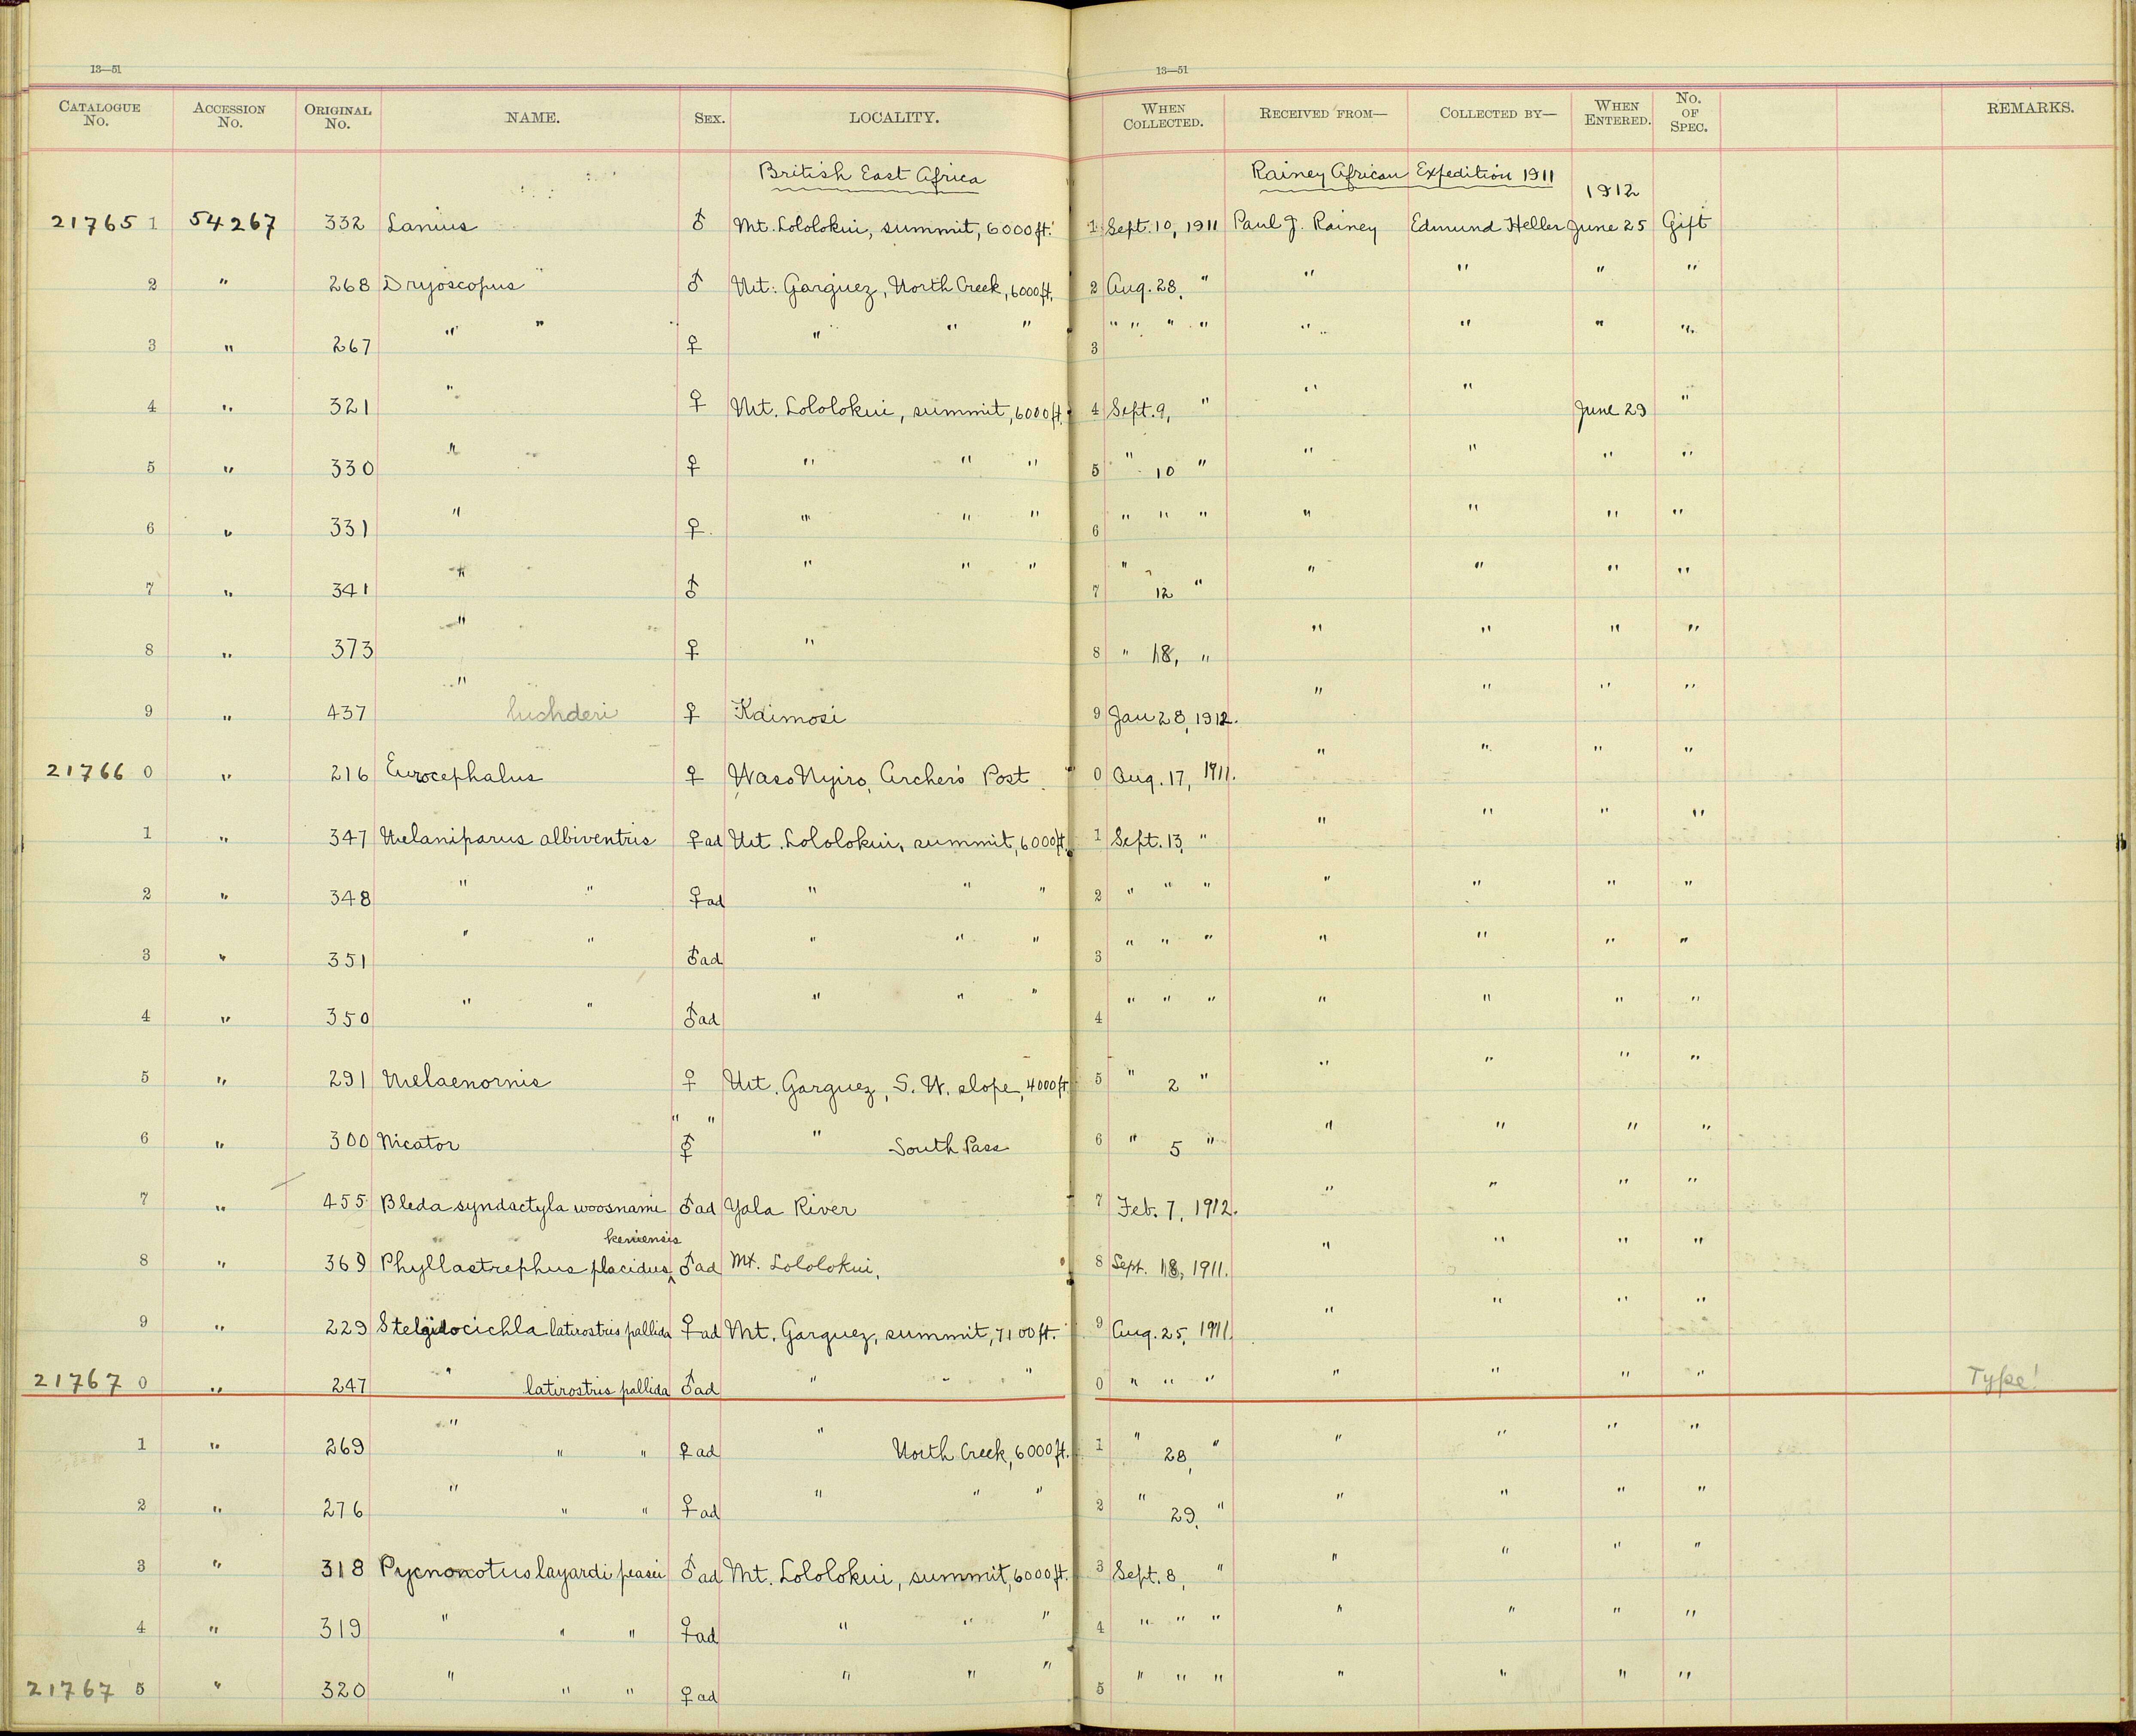 13—51 13—51
CATALOGUE No. ACCESSION No. ORIGINAL No. NAME. SEX. LOCALITY. WHEN COLLECTED. RECEIVED FROM— COLLECTED BY— WHEN ENTERED. No. OF SPEC. REMARKS.
British East Africa Rainey African Expedition 1911 1912
21765 1 54267 332 Lanius ♂ Mt. Lololokui, summit, 6000 ft. 1 Sept. 10, 1911 Paul J. Rainey Edmund Heller June 25 Gift
2 " 268 Dryoscopus ♂ Mt. Garguez, North Creek, 6000 ft. 2 Aug. 28, " " " " "
3 " 267 " " ♀ " " " 3 " " " " " " " "
4 " 321 " ♀ Mt. Lololokui, summit, 6000 ft. 4 Sept. 9, " " " June 29 "
5 " 330 " ♀ " " " 5 " 10 " " " " "
6 " 331 " ♀ " " " 6 " " " " " " "
7 " 341 " ♂ " " " 7 " 12 " " " " "
8 " 373 " ♀ " 8 " 18, " " " " "
9 " 437 " luhderi ♀ Kaimosi 9 Jan 28, 1912. " " " "
21766 0 " 216 Eurocephalus ♀ Waso Nyiro, Archer's Post 0 Aug. 17, 1911. " " " "
1 " 347 Melaniparus albiventris ♀ ad Mt. Lololokui, summit, 6000 ft. 1 Sept. 13, " " " " "
2 " 348 " " ♀ ad " " " 2 " " " " " " "
3 " 351 " " ♂ ad " " " 3 " " " " " " "
4 " 350 " " ♂ ad " " " 4 " " " " " " "
5 " 291 Melaenornis ♀ Mt. Garguez, S. W. slope, 4000 ft. 5 " 2 " " " " "
6 " 300 Nicator " " ♂ ♀ " South Pass 6 " 5 " " " " "
7 " 455 Bleda syndactyla woosnami ♂ ad Yala River 7 Feb. 7, 1912. " " " "
keniensis
8 " 369 Phyllastrephus placidus ^ ♂ ad Mt. Lololokui, 8 Sept. 18, 1911. " " " "
9 " 229 Stelgidocichla latirostris pallida ♀ ad Mt. Garguez, summit, 7100 ft. 9 Aug. 25, 1911 " " " "
21767 0 " 247 " latirostris pallida ♂ ad " " " 0 " " " " " " " Type!
1 " 269 " " " ♀ ad " North Creek, 6000 ft. 1 " 28, " " " " "
2 " 276 " " " ♀ ad " " " 2 " 29, " " " " "
3 " 318 Pycnonotus layardi peasei ♂ ad Mt. Lololokui, summit, 6000 ft. 3 Sept. 8, " " " " "
4 " 319 " " " ♀ ad " " " 4 " " " " " " "
21767 5 " 320 " " " ♀ ad " " " 5 " " " " " " "